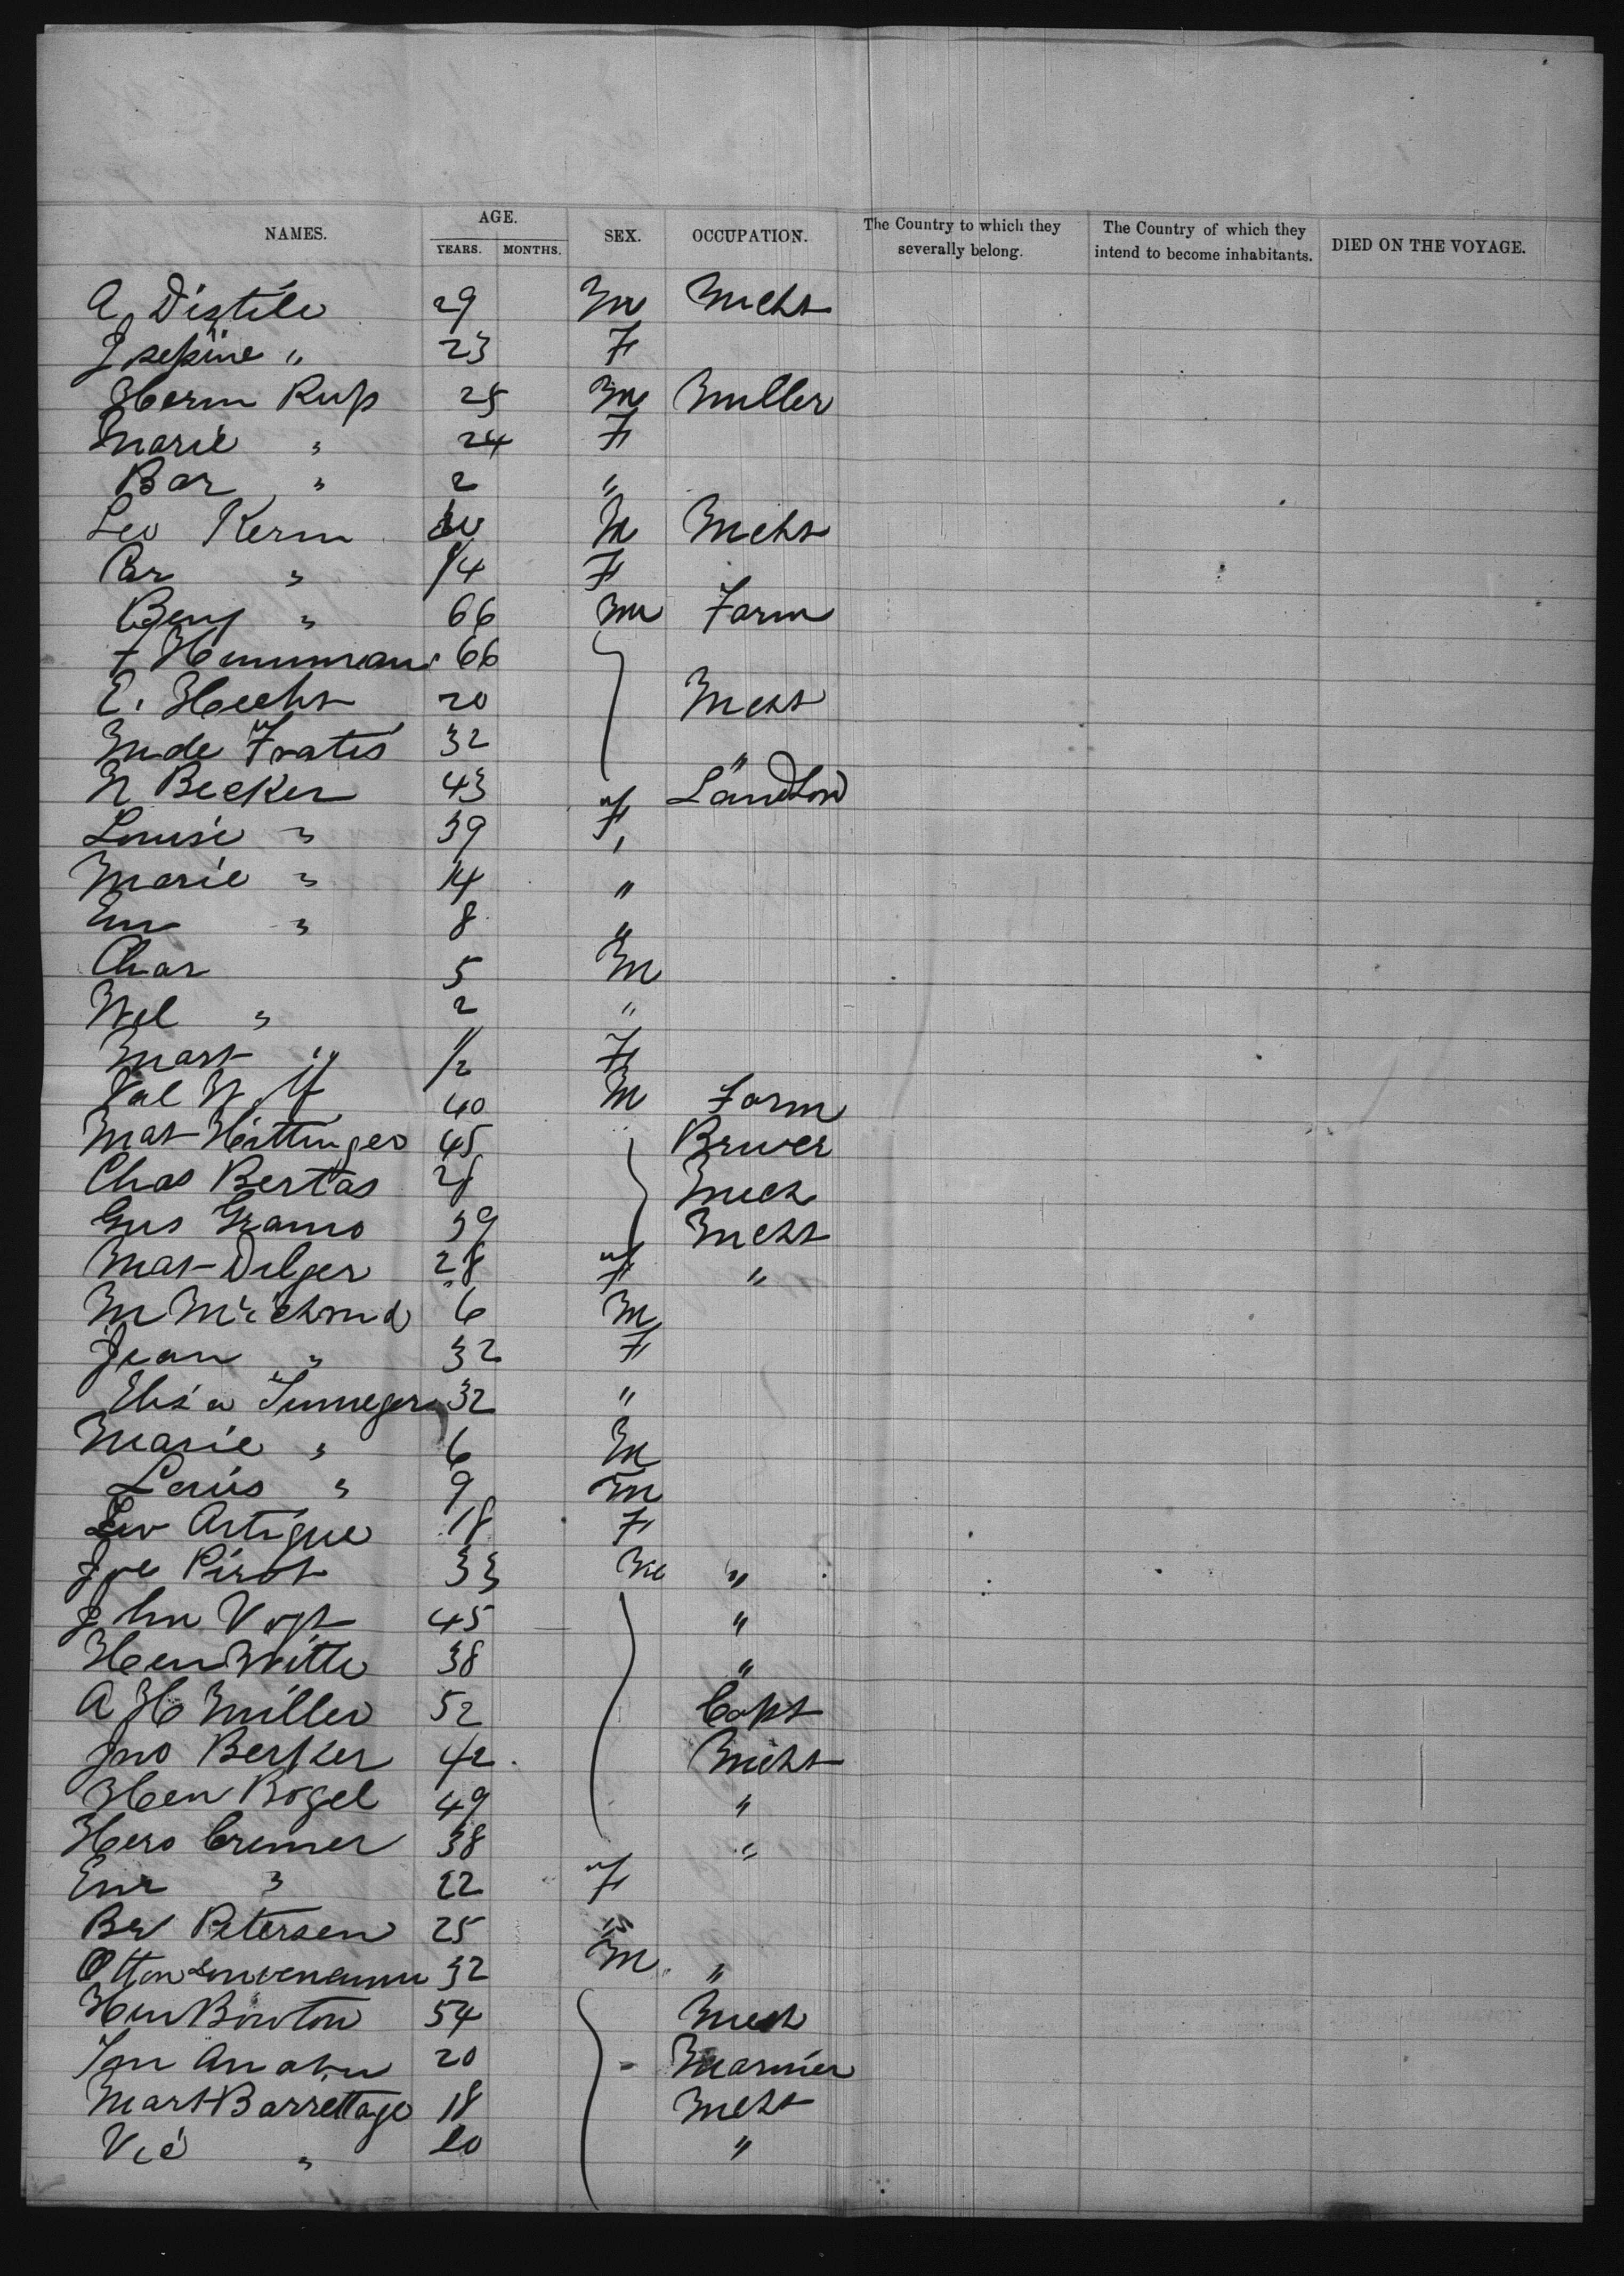 NAMES. AGE. SEX. OCCUPATION. The Country to which they severally belong. The Country of which they intend to become inhabitants. DIED ON THE VOYAGE.
YEARS. MONTHS.
A Distile 29 M Mcht
Josepine " 23 F
Herm Rup 25 M Muller
Marie " 24 F
Bar " 2 "
Leo Kerm M Mcht
Car " 14 F
Benj " 66 M Farm
F 66
E. Hecht 20 Mcht
Fratis 32 "
N Becker 43 Landlord
Louise " 39 F
Marie " 14 "
Em " 8 "
Char 5 M
Wil " 2 "
Mart " 1/2 F
Val Wolf 40 M Farm
Mat Hittinger 45 Bruer
Chas Bertas 28 Mech
Gus 39 Mcht
Mat Dilger 28 F "
M Michond 6 M
Jean " 32 F
Elisa 32 "
Marie " 6 M
Louis " 9 M
Artigue 18 F
Joe Pirot 33 M "
John Vogt 45 "
Hen Witte 38 "
A H Miller 52 Capt
Jno Berker 42 Mcht
Hen Bogel 49 "
Hero Cremer 38 "
Em " 22 F
Petersen 25 "
Otton 32 M "
Hen Bowton 54 Mech
20 Mariner
Mart Barrettage 18 Mcht
Vic " 20 "